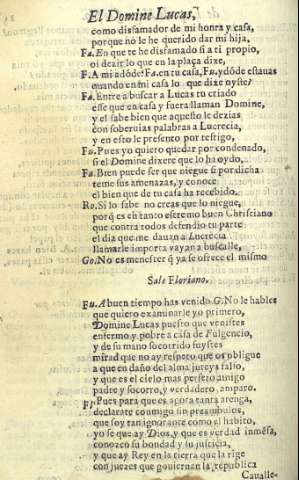 El Domine Lucas,
como disfamador de mi honra y casa,
porque no le he querido dar mi hija,
Fa. En que te he disfamado si a ti propio,
oi dezir lo que en la plaça dixe,
F. A mi adóde? Fa. en tu casa, Fu. y dóde estauas
quando en mi casa lo que dixe oyste?
Fa. Entre a buscar a Lucas tu criado
esse que en casa y fuera llaman Domine,
y el sabe bien que aquesto le dezias
con soberuias palabras a Lucrecia,
y en esto le presento por testigo,
Fu. Pues yo quiero quedar por condenado,
si el Domine dixere que lo ha oydo,
Fa. Bien puede ser que niegue si por dicha
teme tus amenazas, y conoce
el bien que de tu casa ha recebido.
Ro. Si lo sabe no creas que lo niegue,
porq̃ es en tanto estremo buen Christiano
que contra todos defendio tu parte
el dia que me dauan a Lucrecia
llamarle importa vayan a buscalle,
Go. No es menester q̃ ya se ofrece el mismo
Sale Floriano.
Fu. A buen tiempo has venido. G. No le hables
que quiero examinarle yo primero,
Domine Lucas puesto que venistes
enfermo y pobre a casa de Fulgencio,
y de su mano socorrido fuystes
mirad que no ay respeto que os obligue
a que en daño del alma jureys falso,
y que es el cielo mas perfeto amigo
padre y socorro, y verdadero amparo.
Fl. Pues para que es agora tanta arenga,
declarate conmigo sin preambulos,
que soy tan ignorante como al habito,
yo se que ay Dios, y que es verdad inmésa,
conozco su bondad y su justicia,
y que ay Rey en la tierra que la rige
con juezes que gouiernan la republica
Cavalle-